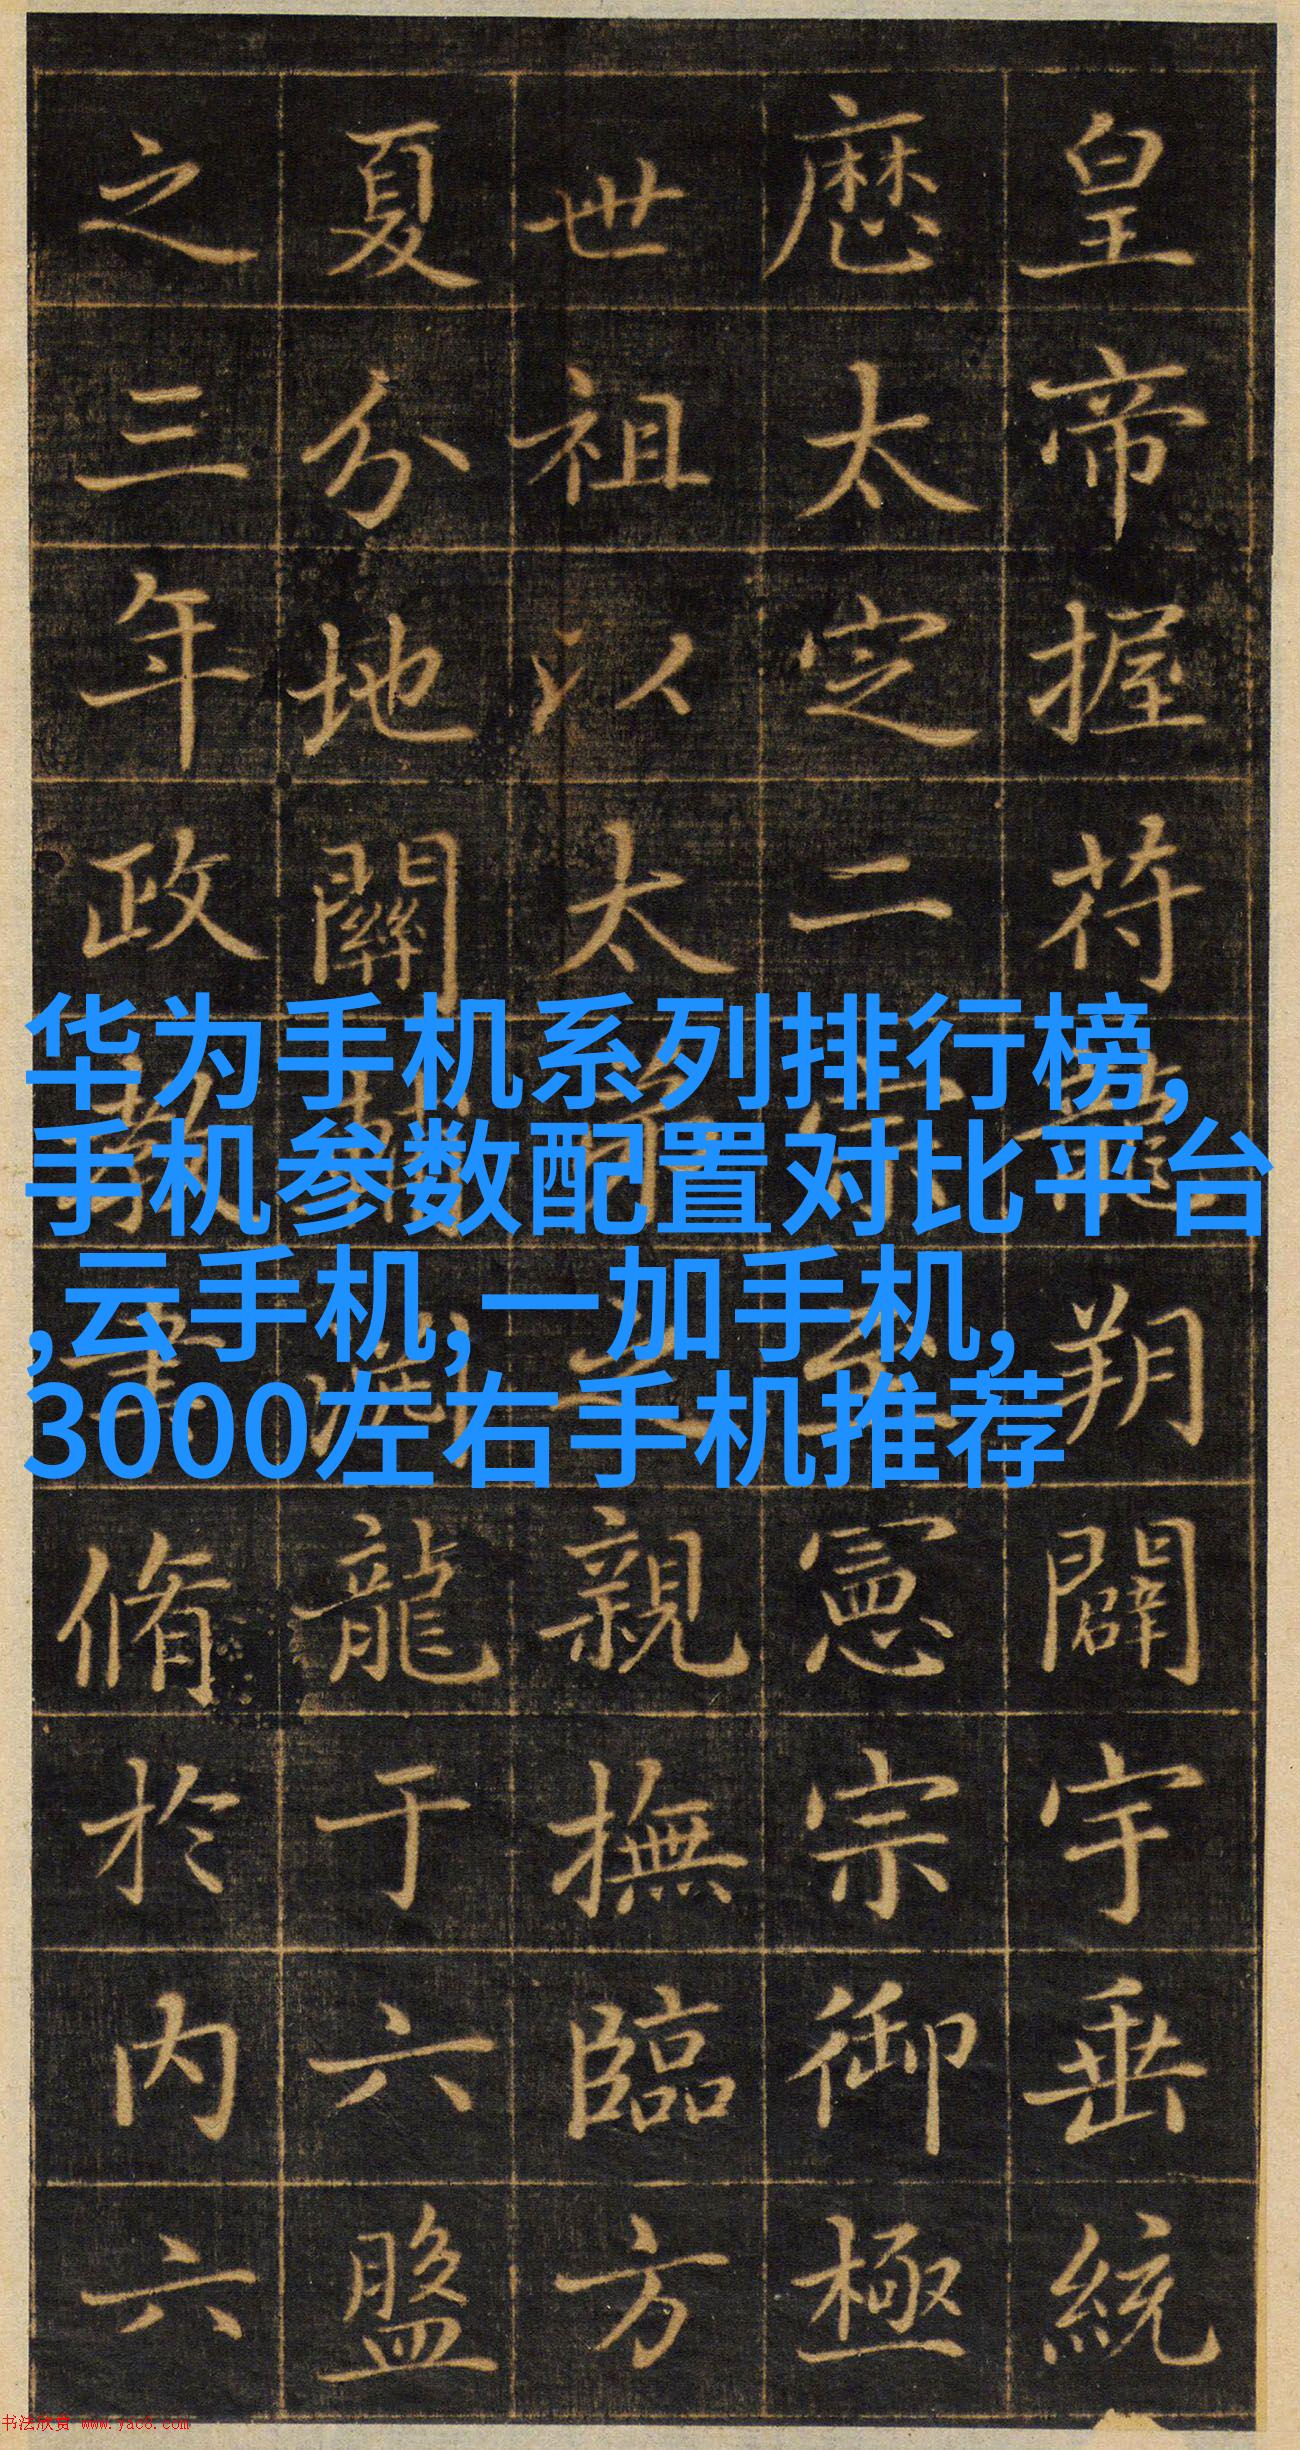 皇帝握符龍朔闢宇垂統
厯太定二宗憲宗御極
世祖以太之親撫臨方
夏分地關龍于六盤
之三年政事脩於内六
华为手机系列排行榜,
手机参数配置对比平台
,云手机,一加手机,
3000左右手机推荐
书法欣赏 www.yac8.com